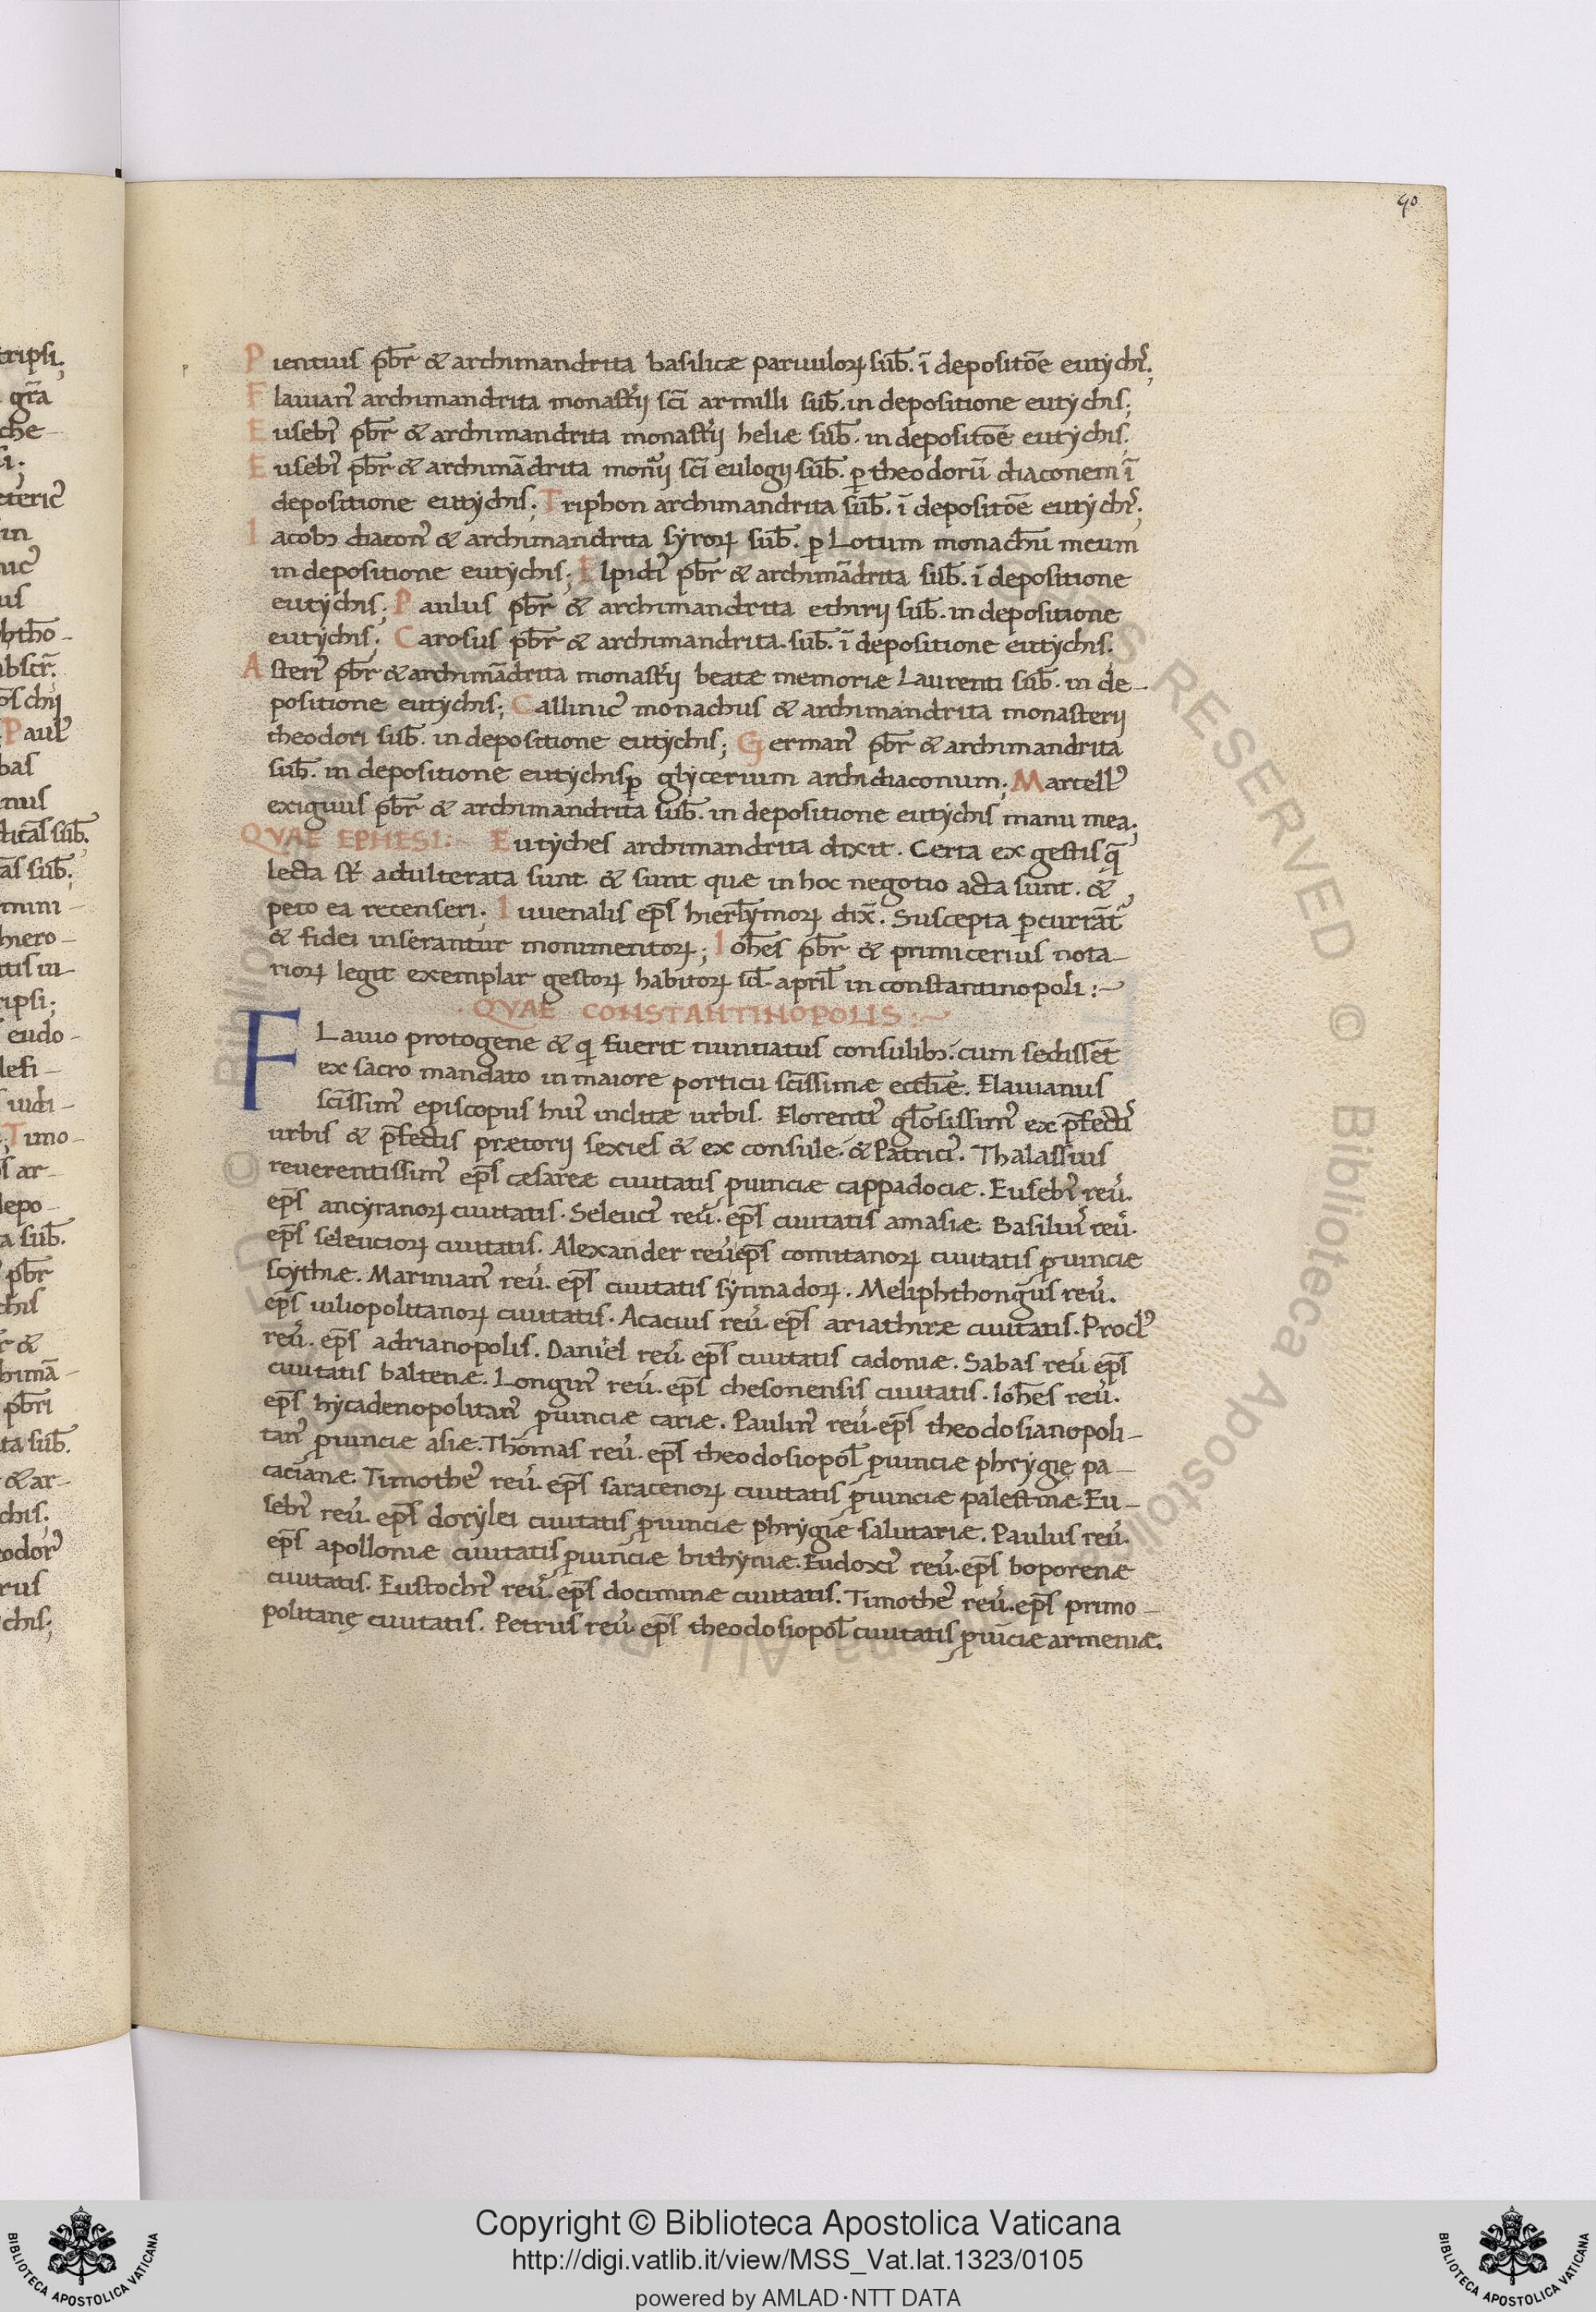 90
Pientius pb̅r & archimandrita basilicæ paruuloꝝ sub̅. ı̅ deposito̅e eutychꝭ;
Flauianꝰ archimandrita monastꝭii sc̅i armilli sub̅. in depositione eutychis;
Eusebiꝰ pb̅r & archimandrita monastꝭii heliæ sub̅. in deposito̅e eutychis.
Eusebiꝰ pb̅r & archima̅drita monꝭii sc̅i eulogii sub̅. ꝑ theodoru̅ diaconem ı̅
depositione eutychis; Triphon archimandrita sub̅. ı̅ deposito̅e eutychꝭ;
Iacobꝰ diaconꝰ & archimandrita syroꝝ sub̅. ꝑ Lotum monachu̅ meum
in depositione eutychis; Elpidiꝰ pb̅r & archima̅drita sub̅. ı̅ depositione
eutychis; Paulus pb̅r & archimandrita ethirii sub̅. in depositione
eutychis; Carosus pb̅r & archimandrita. sub̅. ı̅ depositione eutychis.
Asteriꝰ pb̅r & archima̅drita monastꝭii beatæ memoriæ Laurenti sub̅. in de-
positione eutychis; Callinicꝰ monachus & archimandrita monasterii
theodori sub̅. in depositione eutychis; Germanꝰ pb̅r & archimandrita
sub̅. in depositione eutychis ꝑ glycerium archidiaconum; Marcellꝰ
exiguus pb̅r & archimandrita sub̅. in depositione eutychis manu mea;
QVAE EPHESI: Eutyches archimandrita dixit. Certa ex gestis q̅
lecta st̅ adulterata sunt. & sunt quæ in hoc negotio acta sunt. &
peto ea recenseri; Iuuenalis ep̅s hierl̅ymoꝝ dix̅. Suscepta ꝑcurra̅tꝰ
& fidei inserantur monumentoꝝ; Ioh̅es pb̅r & primicerius nota-
rioꝝ legit exemplar gestoꝝ habitoꝝ id̅. april̅ in constantinopoli:~
QVAE CONSTANTINOPOLIS:~
FLauio protogene & qi fuerit nuntiatus consulibꝰ. cum sedisse̅t
ex sacro mandato in maiore porticu sc̅issimæ eccl̅iæ. Flauianus
sc̅issimꝰ episcopus huiꝰ inclitæ urbis. Florentiꝰ gl̅osissimꝰ ex p̅fectꝭ
urbis & p̅fectis prætorii sexies & ex consule. & Patriciꝰ. Thalassius
reuerentissimꝰ ep̅s cæsareæ ciuitatis ꝓuinciæ cappadociæ. Eusebiꝰ reu̅.
ep̅s ancyranoꝝ ciuitatis. Seleuciꝰ reu̅. ep̅s ciuitatis amasiæ Basiliuꝰ reu̅.
ep̅s seleucioꝝ ciuitatis. Alexander reu̅ ep̅s comitanoꝝ ciuitatis ꝓuinciæ
scythiæ. Marinianꝰ reu̅. ep̅s ciuitatis synnadoꝝ. Meliphthongus reu̅.
ep̅s iuliopolitanoꝝ ciuitatis. Acacius reu̅. ep̅s ariathiræ ciuitatis. Proclꝰ
reu̅. ep̅s adrianopolis. Daniel reu̅. ep̅s ciuitatis cadoniæ. Sabas reu̅ ep̅s
ciuitatis baltenæ. Longinꝰ reu̅. ep̅s chesonensis ciuitatis. Ioh̅es reu̅.
ep̅s hycadenopolitanꝰ ꝓuinciæ cariæ. Paulinꝰ reu̅. ep̅s theodosianopoli-
tanꝰ ꝓuinciæ asiæ. Thomas reu̅. ep̅s theodosiopol̅ ꝓuinciæ phrygię pa-
cacianæ. Timotheꝰ reu̅. ep̅s saracenoꝝ ciuitatis ꝓuinciæ palestinæ. Eu-
sebiꝰ reu̅. ep̅s dorylei ciuitatis ꝓuinciæ phrygiæ salutariæ. Paulus reu̅.
ep̅s apolloniæ ciuitatis ꝓuinciæ bithyniæ. Eudoxiꝰ reu̅. ep̅s boporenæ
ciuitatis. Eustochiꝰ reu̅. ep̅s dociminæ ciuitatis. Timotheꝰ reu̅. ep̅s primo-
politanę ciuitatis. Petrus reu̅. ep̅s theodosiopol̅ ciuitatis ꝓui̅ciæ armeniæ.
Copyright © Biblioteca Apostolica Vaticana
http://digi.vatlib.it/view/MSS_Vat.lat.1323/0105
powered by AMLAD·NTT DATA